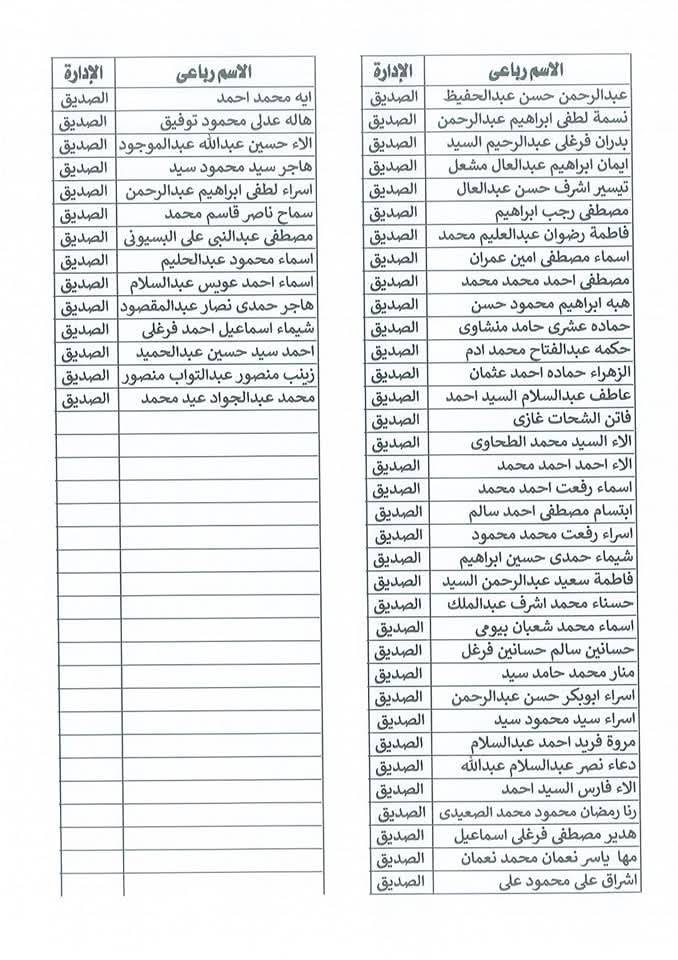 الاسم رباعى الإدارة
عبدالرحمن حسن عبدالحفيظ الصديق
نسمة لطفى ابراهيم عبدالرحمن الصديق
بدران فرغلى عبدالرحيم السيد الصديق
ايمان ابراهيم عبدالعال مشعل الصديق
تيسير اشرف حسن عبدالعال الصديق
مصطفى رجب ابراهيم الصديق
فاطمة رضوان عبدالعليم محمد الصديق
اسماء مصطفى امين عمران الصديق
مصطفى احمد محمد محمد الصديق
هبه ابراهيم محمود حسن الصديق
حماده عشرى حامد منشاوى الصديق
حكمه عبدالفتاح محمد ادم الصديق
الزهراء حماده احمد عثمان الصديق
عاطف عبدالسلام السيد احمد الصديق
فاتن الشحات غازى الصديق
الاء السيد محمد الطحاوى الصديق
الاء احمد احمد محمد الصديق
اسماء رفعت احمد محمد الصديق
ابتسام مصطفى احمد سالم الصديق
اسراء رفعت محمد محمود الصديق
شيماء حمدى حسين ابراهيم الصديق
فاطمة سعيد عبدالرحمن السيد الصديق
حسناء محمد اشرف عبدالملك الصديق
اسماء محمد شعبان بيومى الصديق
حسانين سالم حسانين فرغل الصديق
منار محمد حامد سيد الصديق
اسراء ابوبكر حسن عبدالرحمن الصديق
اسراء سيد محمود سيد الصديق
مروة فريد احمد عبدالسلام الصديق
دعاء نصر عبدالسلام عبدالله الصديق
الاء فارس السيد احمد الصديق
رنا رمضان محمود محمد الصعيدى الصديق
هدير مصطفى فرغلى اسماعيل الصديق
مها ياسر نعمان محمد نعمان الصديق
اشراق على محمود على الصديق
الاسم رباعى الإدارة
ايه محمد احمد الصديق
هاله عدلى محمود توفيق الصديق
الاء حسين عبدالله عبدالموجود الصديق
هاجر سيد محمود سيد الصديق
اسراء لطفى ابراهيم عبدالرحمن الصديق
سماح ناصر قاسم محمد الصديق
مصطفى عبدالنبى على البسيونى الصديق
اسماء محمود عبدالحليم الصديق
اسماء احمد عويس عبدالسلام الصديق
هاجر حمدى نصار عبدالمقصود الصديق
شيماء اسماعيل احمد فرغلى الصديق
احمد سيد حسين عبدالحميد الصديق
زينب منصور عبدالتواب منصور الصديق
محمد عبدالجواد عيد محمد الصديق